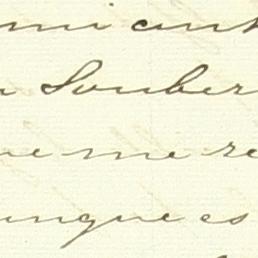 mi ant
Souber
ue me re
unque es